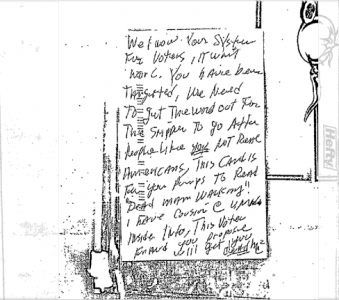 We know Your System
For Voters, it won't
work. You have been
Targeted, We Need
To get The word out For
The Sniper To go After
People Like you Not Real
Americans, This Card is
For you Pumps To Read
"Dead man walking"!!
I have Cousin @
Inside Info, This Voter
Fraud you Propose
will get you
Hefty